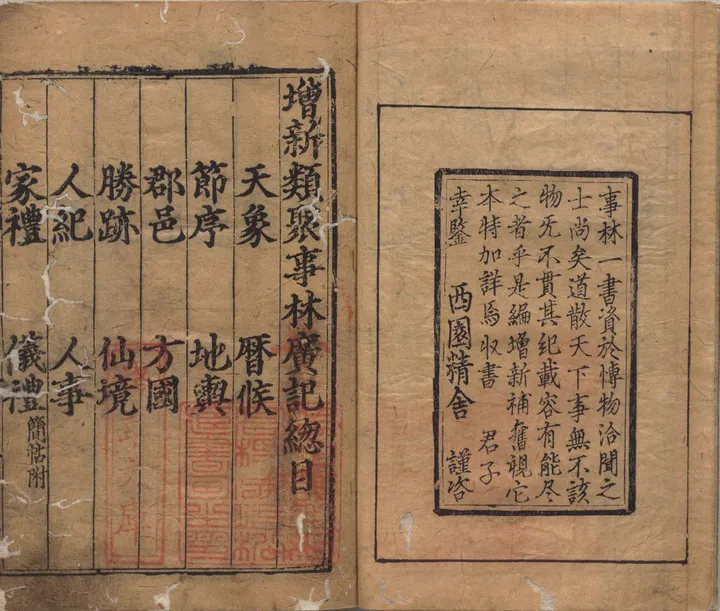 事林一書資於愽物洽聞之
士尚矣道散天下事無不該
物旡不貫其紀載容有能尽
之者乎是編增新補舊視它
本特加詳焉收書 君子
幸鑒 西園精舍 謹咨
增新類聚事林廣記總目
天象 暦候
節序 地輿
郡邑 方國
勝跡 仙境
人紀 人事
家禮 儀禮 簡帖附